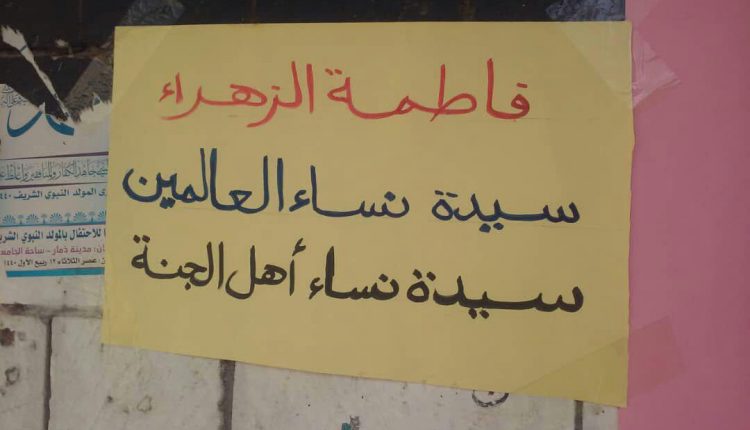 فاطمة الزهراء
سيدة نساء العالمين
سيدة نساء أهل الجنة
جاهد الكفار والمنافقين واغلظ
ى المولد النبوي الشريف ١٤٤٠
ا للاحتفال بالمولد النبوي الشريف
ان: مدينة ذمار - ساحة الجامع
عصر الثلاثاء ١٢ ربيع الأول ١٤٤٠